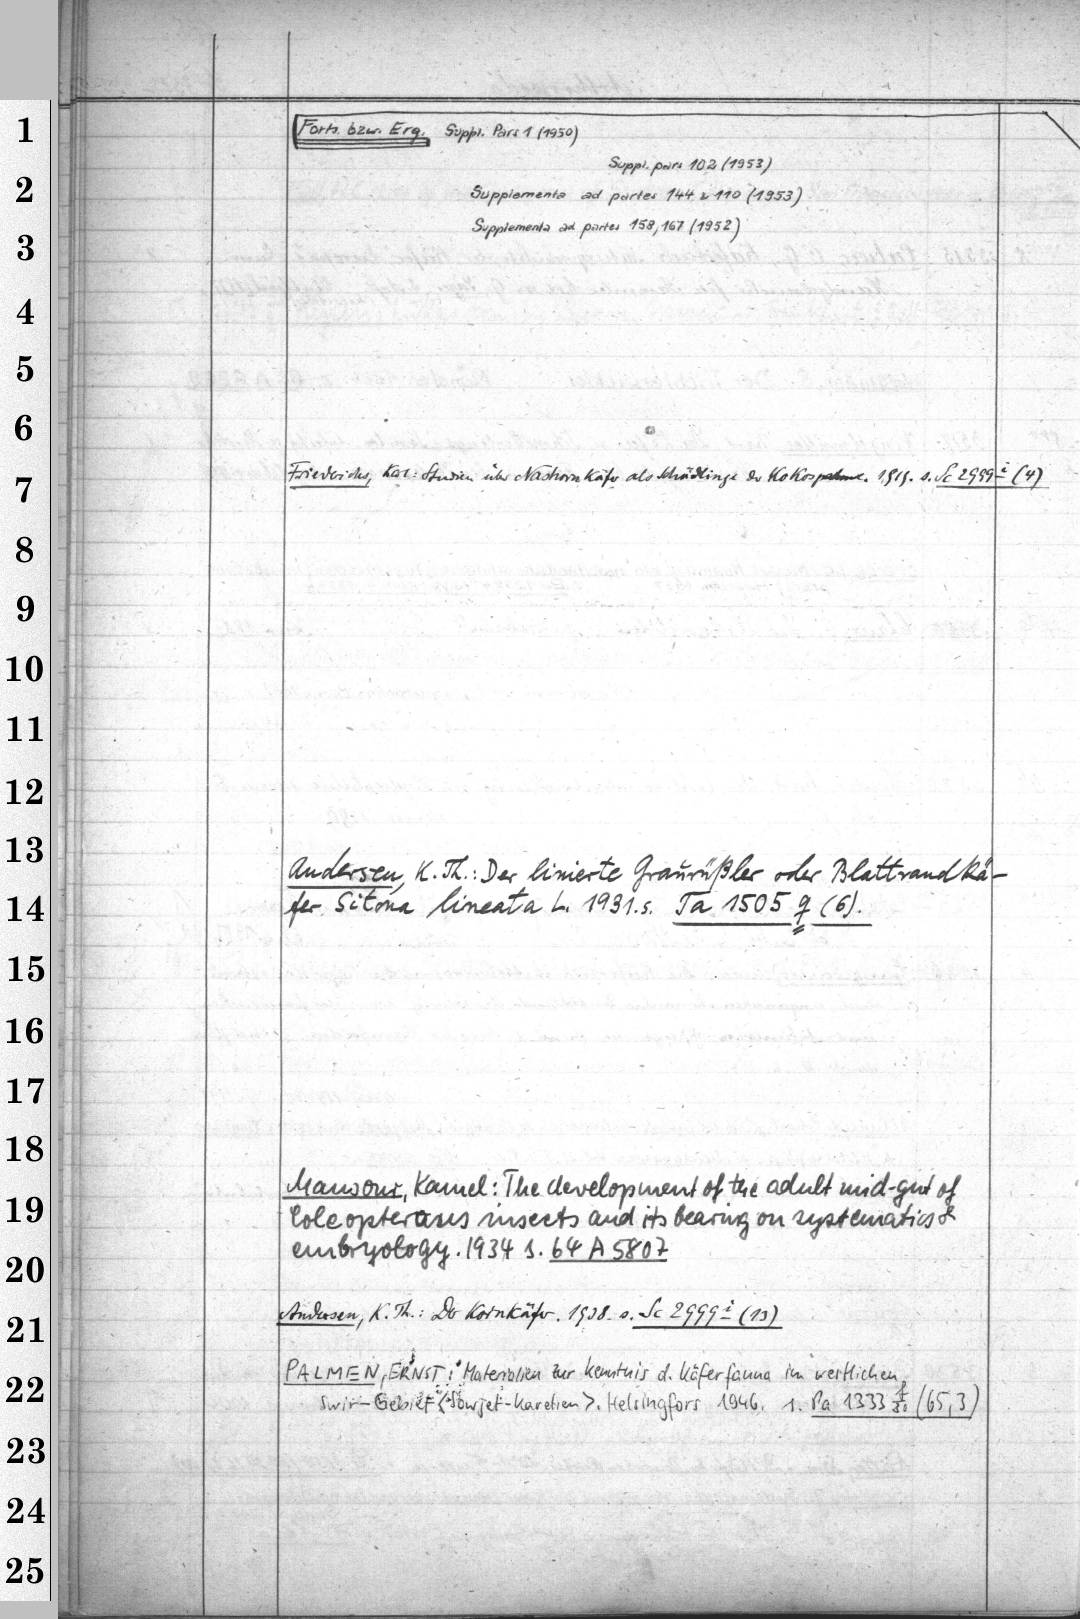 1
Forts. bzw. Erg. Suppl. Pars 1 (1950)
Suppl. pars 102 (1953)
2
Supplementa ad partes 144 u 110 (1953)
Supplementa ad partes 158, 167 (1952)
3
4
5
6
7
Friederichs, Karl: Studien über Nashornkäfer als Schädlinge der Kokospalme. 1919. s. Sc 2999 i (4)
8
9
10
11
12
13
Andersen, K. Th.: Der linierte Graurüßler oder Blattrandkä-
14
fer Sitona lineata L. 1931. s. Ta 1505 q (6).
15
16
17
18
Mansour, Kamel: The development of the adult mid-gut of
19
Coleopterous insects and its bearing on systematics &
embryology. 1934 s. 64 A 5807
20
21
Andersen, K. Th.: Der Kornkäfer. 1938. s. Sc 2999 i (13)
PALMEN, ERNST: Materialien zur Kenntnis d. Käferfauna im westlichen
22
Swir-Gebiet <Sowjet-Karelien>. Helsingfors 1946. s. Pa 1333 (65,3)
23
24
25